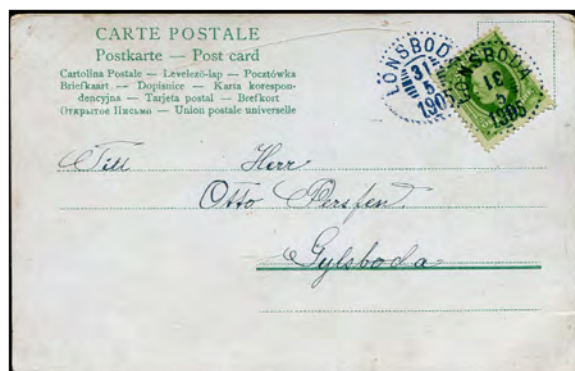 CARTE POSTALE
Postkarte — Post card
Cartolina Postale — Levelező-lap — Pocztówka
Briefkaart — Dopisnice — Karta korespon-
dencyjna — Tarjeta postal — Brefkort
Открытое Письмо — Union postale universelle
LÖNSBODA
31
5
1905
LÖNSBODA
31
5
1905
Till Herr
Otto Persson.
Gylsboda